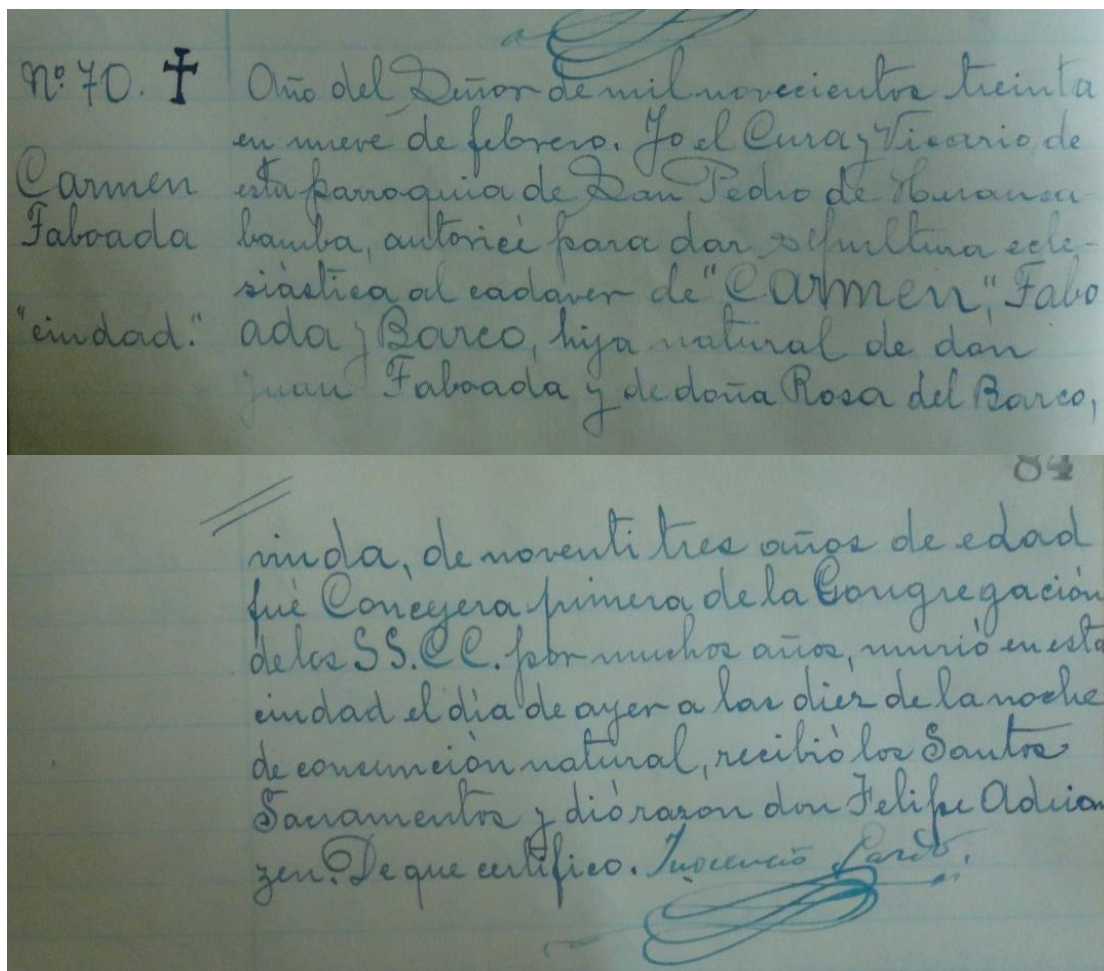 Nº 70. ✝ Año del Señor de mil novecientos treinta
en nueve de febrero. Yo el Cura y Vicario de
Carmen esta parroquia de San Pedro de Huanca-
Taboada bamba, autoricé para dar sepultura ecle-
siástica al cadáver de "Carmen", Tabo
"ciudad." ada y Barco, hija natural de don
Juan Taboada y de doña Rosa del Barco,
84
viuda, de noventi tres años de edad
fué Conceyera primera de la Congregación
de los SS.CC. por muchos años, murió en esta
ciudad el día de ayer a las diez de la noche
de consunción natural, recibió los Santos
Sacramentos y dió razon don Felipe Adrian
zen. De que certifico. Inocencio Pardo.